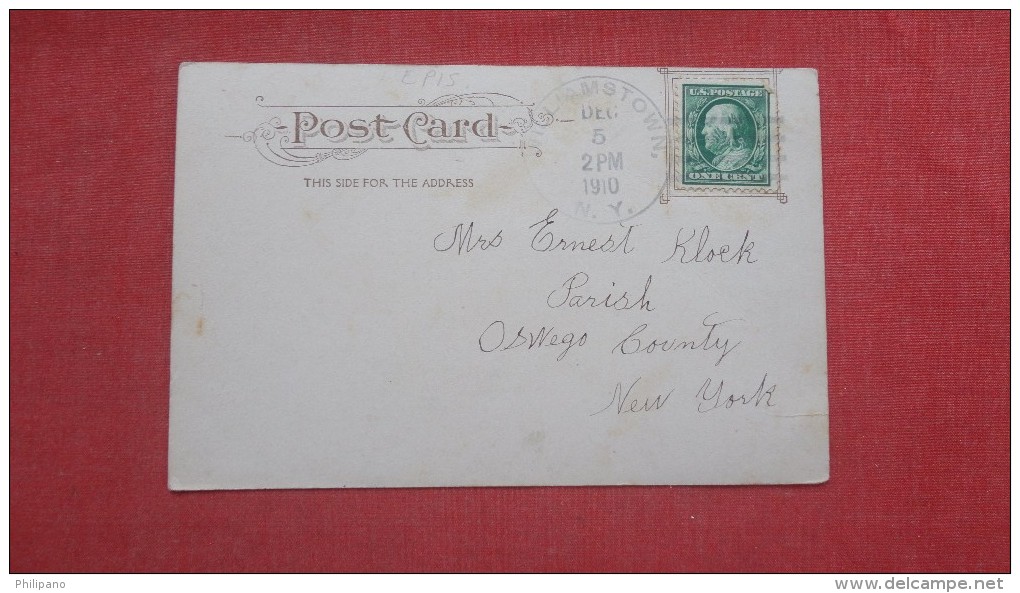 EPIS
Post Card
THIS SIDE FOR THE ADDRESS
WILLIAMSTOWN,
DEC
5
2PM
1910
N. Y.
U.S. POSTAGE
ONE CENT
Mrs Ernest Klock
Parish
Oswego County
New York
Philipano
www.delcampe.net